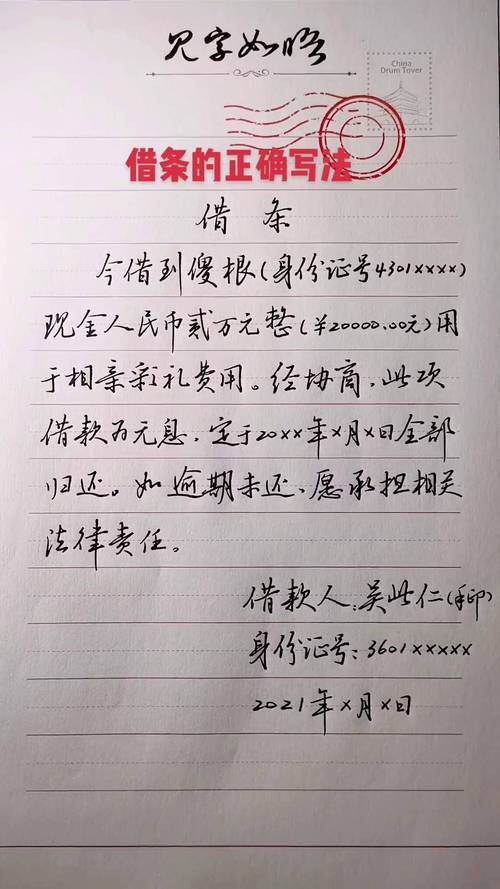 见字如晤
China
Drum Tover
借条的正确写法
借 条
今借到傻根(身份证号4301××××)
现金人民币贰万元整(￥20000.00元)用
于相亲彩礼费用。经协商,此项
借款为无息,定于20××年×月×日全部
归还。如逾期未还,愿承担相关
法律责任。
借款人:吴此仁(手印)
身份证号:3601×××××
2021年×月×日